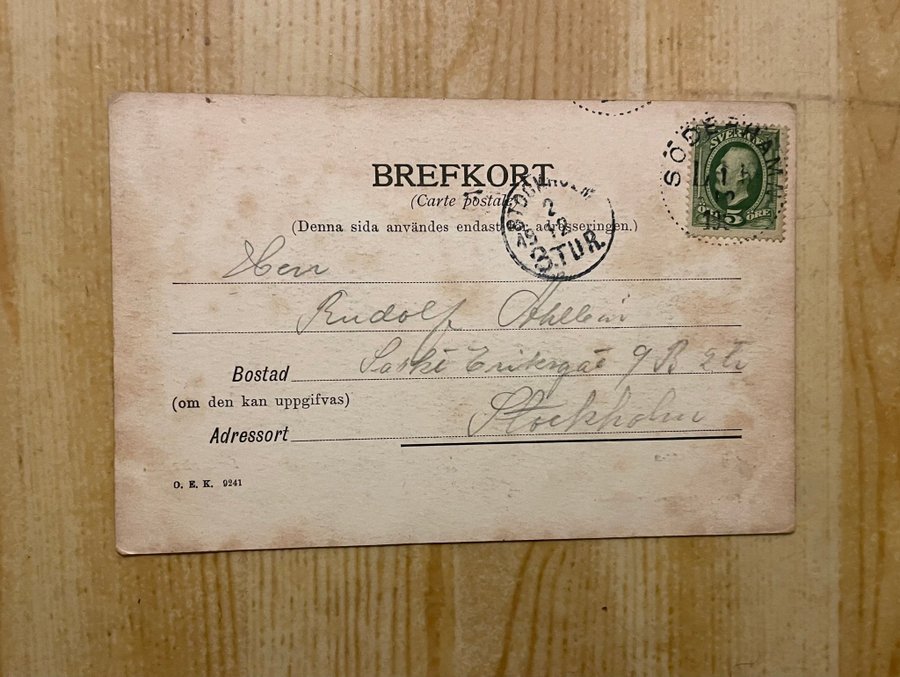 BREFKORT
(Carte postale)
(Denna sida användes endast för adresseringen.)
SÖDERHAMN
SVERIGE
5 ÖRE
STOCKHOLM
2
12
3.TUR.
Herr
Rudolf
Bostad 9 B 2 tr
(om den kan uppgifvas)
Adressort Stockholm
O. E. K. 9241